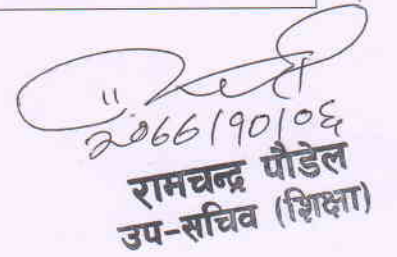 २०६६/१०/०६
रामचन्द्र पौडेल
उप-सचिव (शिक्षा)